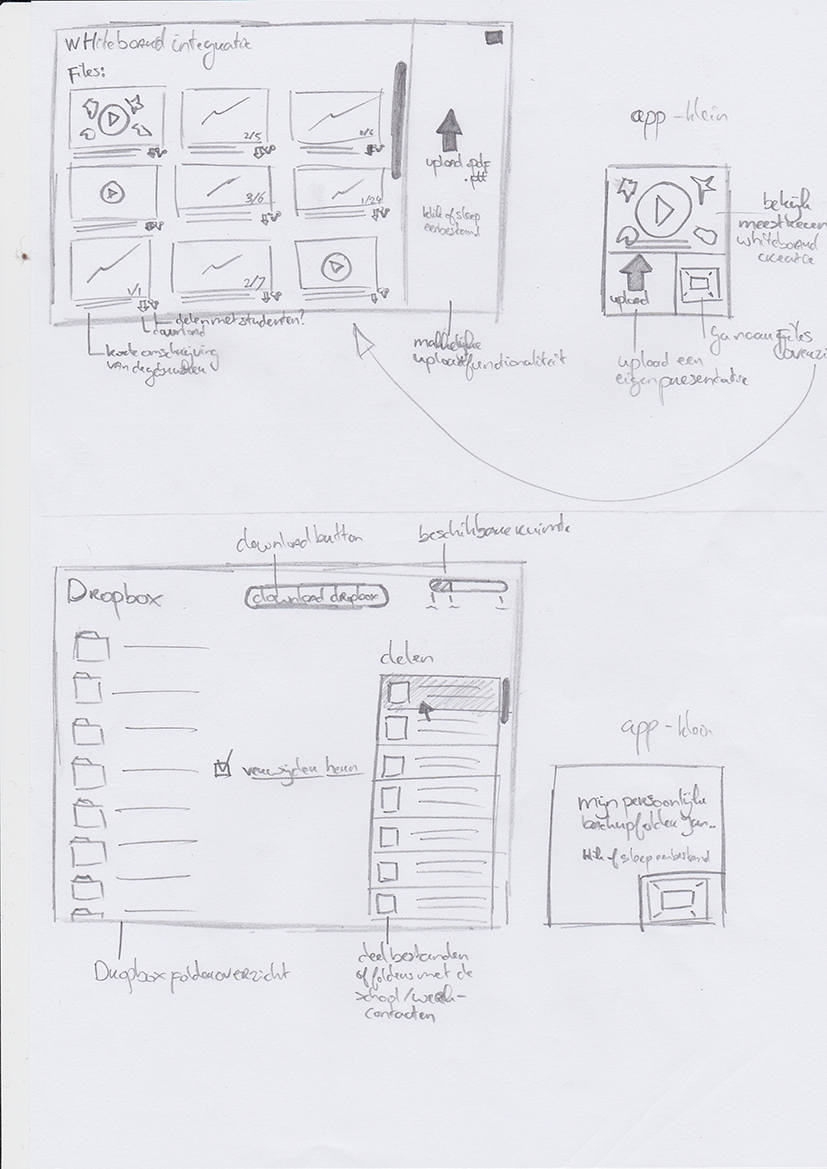 WHiteboard integratie
Files:
2/5
3/6
1/24
1/1
2/7
upload .pdf
.ptt
klik of sleep
een bestand
delen met studenten?
download
korte omschrijving
van de
makkelijke
upload functionaliteit
app - klein
upload
bekijk
meest recen
whiteboard
creatie
ga naar Files
overzi
upload een
eigen presentatie
download button
beschikbare ruimte
Dropbox
download dropbox
delen
verwijder hem
Dropbox folder overzicht
deel bestanden
of folders met de
school/werk-
contacten
app - klein
mijn persoonlijke
backup folder van..
klik of sleep een bestand